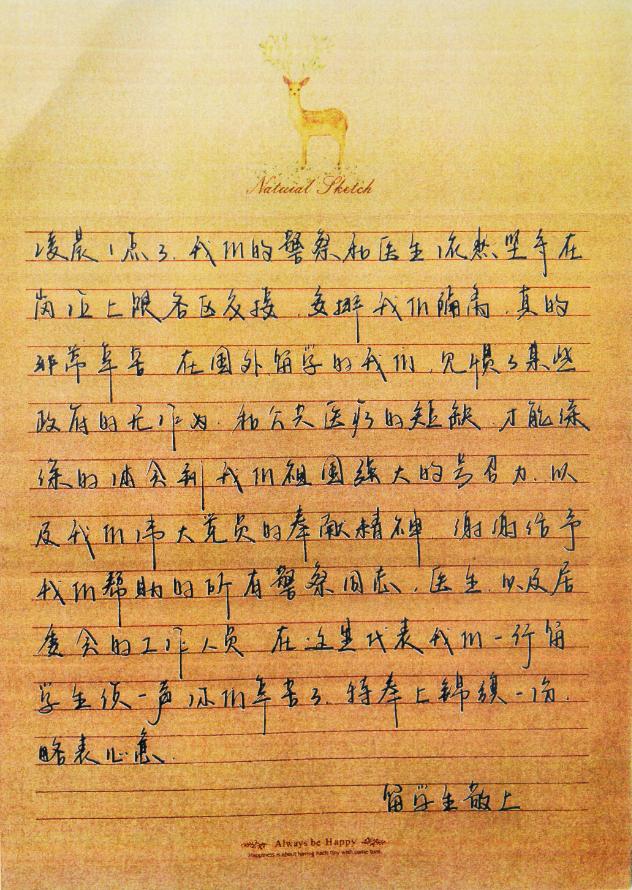 Natural Sketch
凌晨1点了,我们的警察和医生依然坚守在
岗位上跟各区交接,安排我们隔离,真的
非常辛苦 在国外留学的我们,见惯了某些
政府的无作为,和公共医疗的短缺,才能深
深的体会到我们祖国强大的号召力,以
及我们伟大党员的奉献精神 谢谢给予
我们帮助的所有警察同志,医生,以及居
委会的工作人员 在这里代表我们一行留
学生侯一声你们辛苦了,特奉上锦旗一份,
略表心意.
留学生敬上
Always be Happy
Happiness is about having each tiny wish come true.